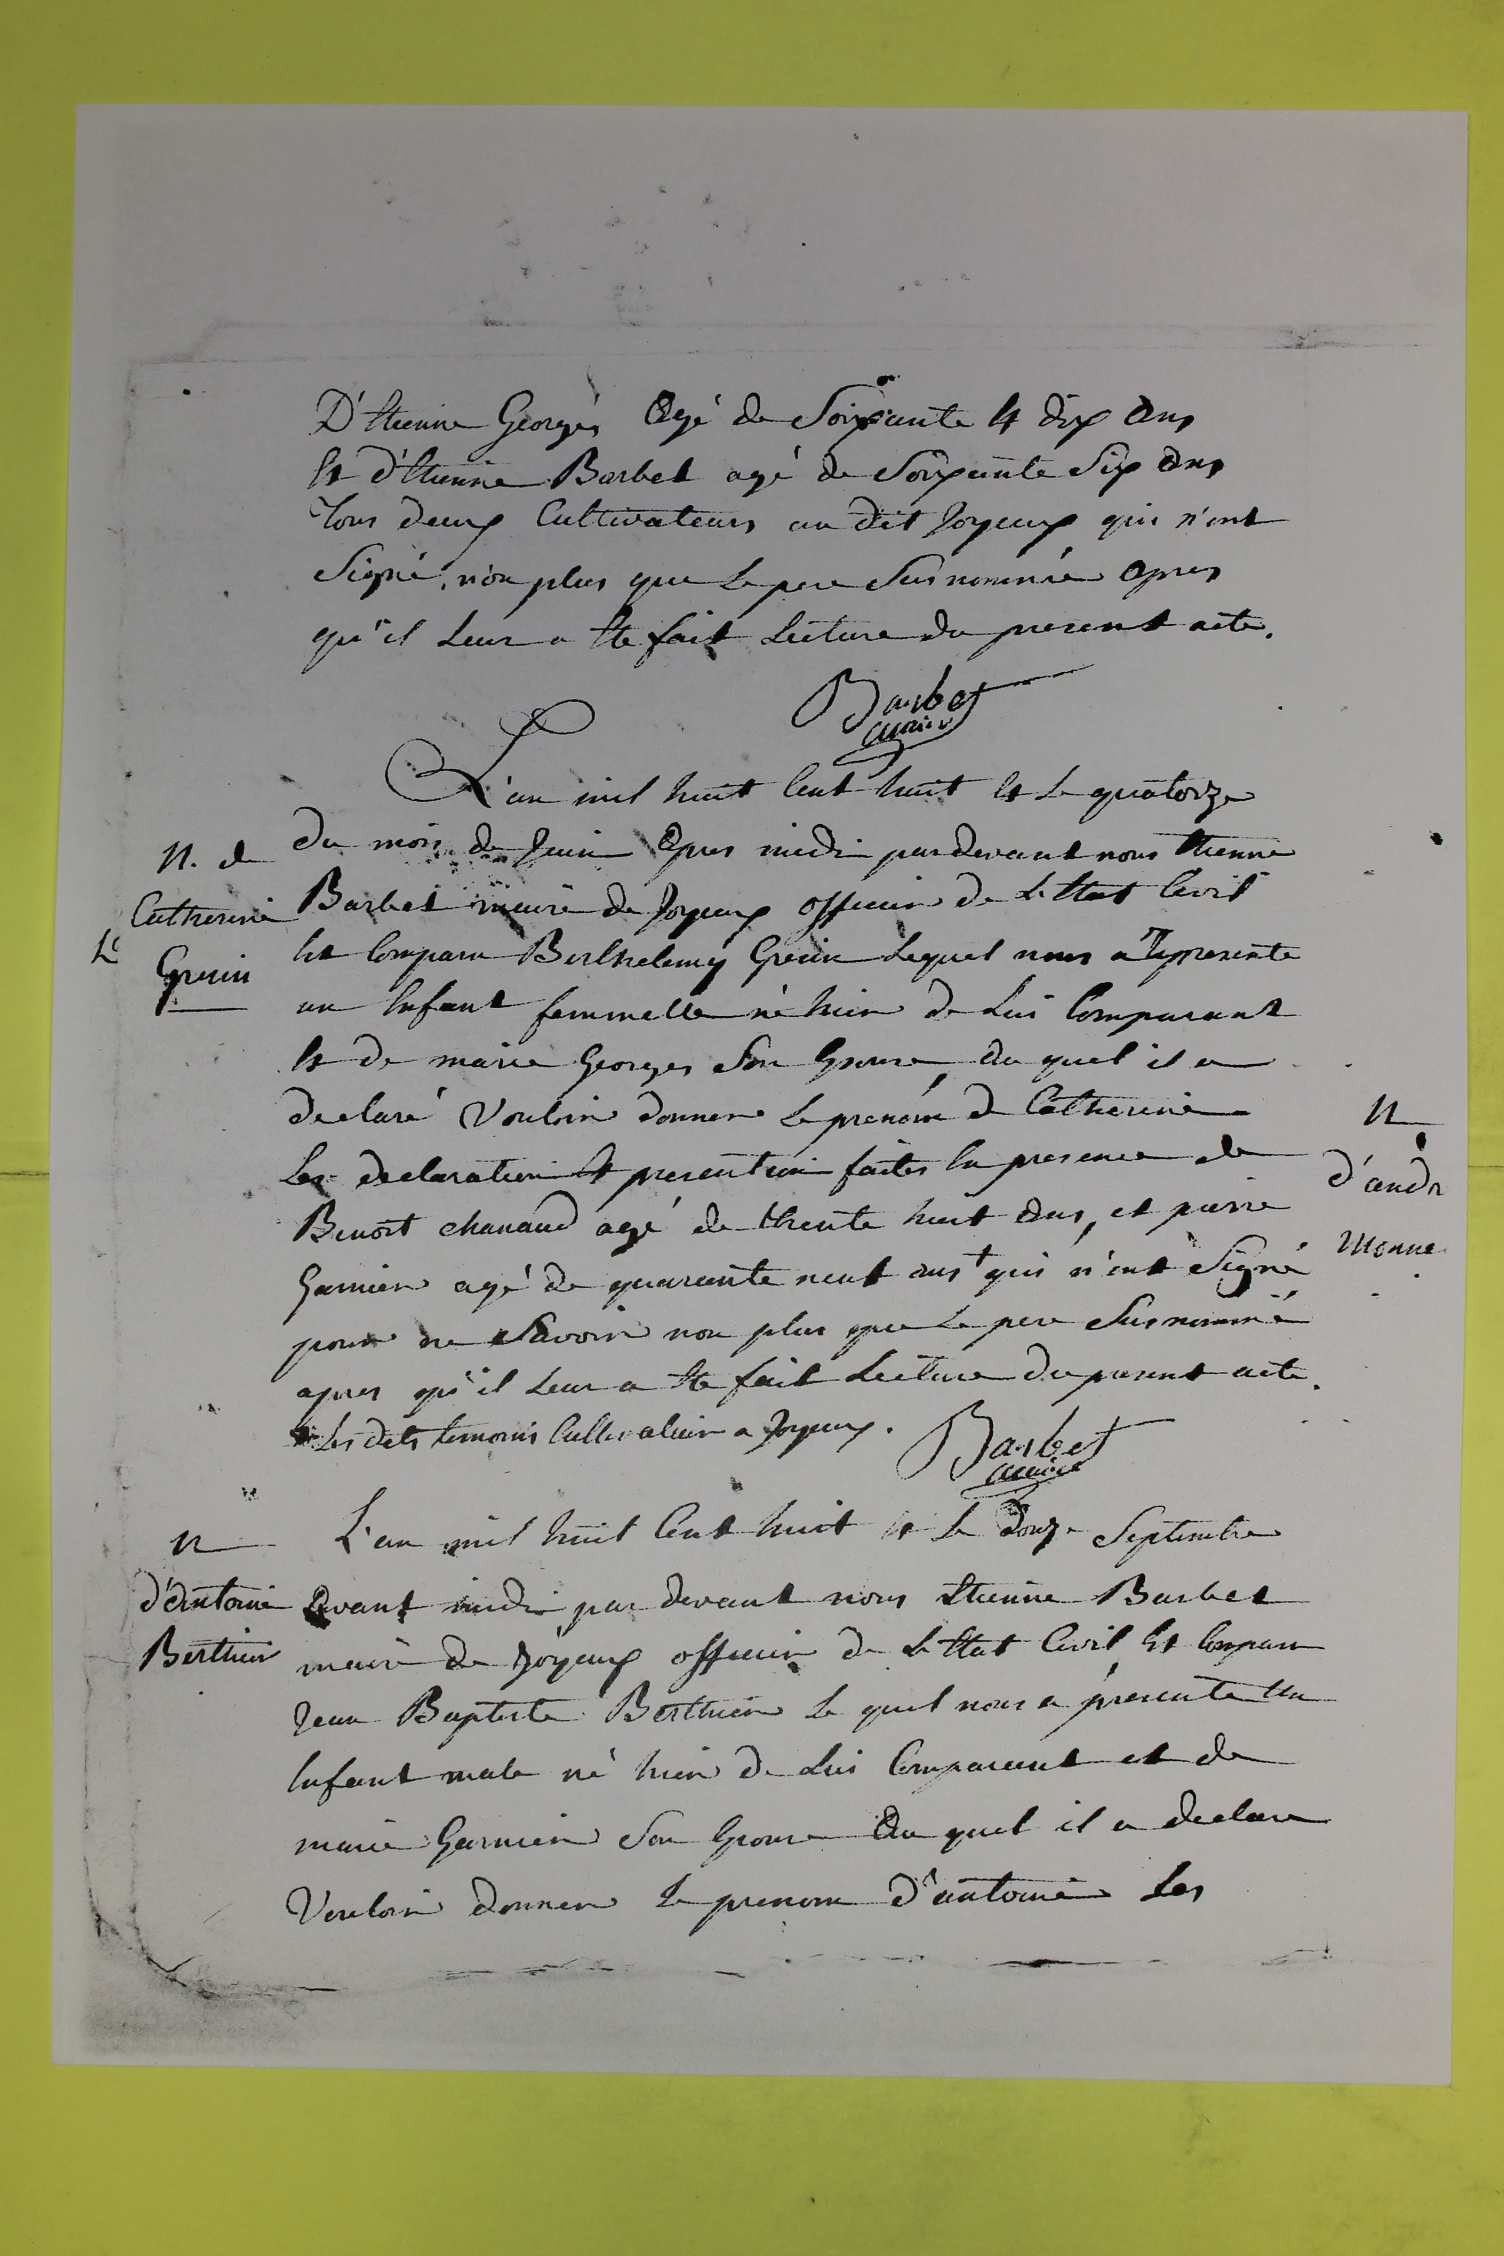 D'Etienne Georges Agé de Soixante Et dix Ans
Et d'Etienne Barbet agé de Soixante Six Ans
Tous deux Cultivateurs au dit Joyeux qui n'ont
Signé, non plus que Le pere Susnommé Apres
qu'il Leur a Ete fait Lecture du present acte.
Barbet
maire
L'an mil huit Cent huit Et Le quatorze
N. de
Catherine
Grecin
du mois de Juin Apres midi par devant nous Etienne
Barbet maire de Joyeux officier de L'Etat Civil
Est Comparu Berthelemy Grecin Lequel nous a représenté
un Enfant femmelle né hier de Lui Comparant
Et de marie Georges Son Epouse Au quel il a
declaré Vouloir donner Le prenom de Catherine
Les declaration Et presention faites En presence de
Benoit chanaud agé de thrente huit Ans, et pierre
Garnier agé de quarente neuf ans + qui n'ont Signé
pour ne Savoir non plus que Le pere Susnommé
apres qu'il Leur a Ete fait Lecture du present acte.
+ Les dits temoins Cultivateur a Joyeux.
Barbet
maire
N
d'andr
Monne
N
d'Antoine
Berthier
L'an mil huit Cent huit Et Le Douze Septembre
Avant midi par devant nous Etienne Barbet
maire de Joyeux officier de L'Etat Civil Est Comparu
Jean Baptiste Berthier Le quel nous a presenté Un
Enfant male né hier de Lui Comparant et de
marie Garnier Son Epouse Au quel il a declare
Vouloir donner Le prenom d'antoine Les